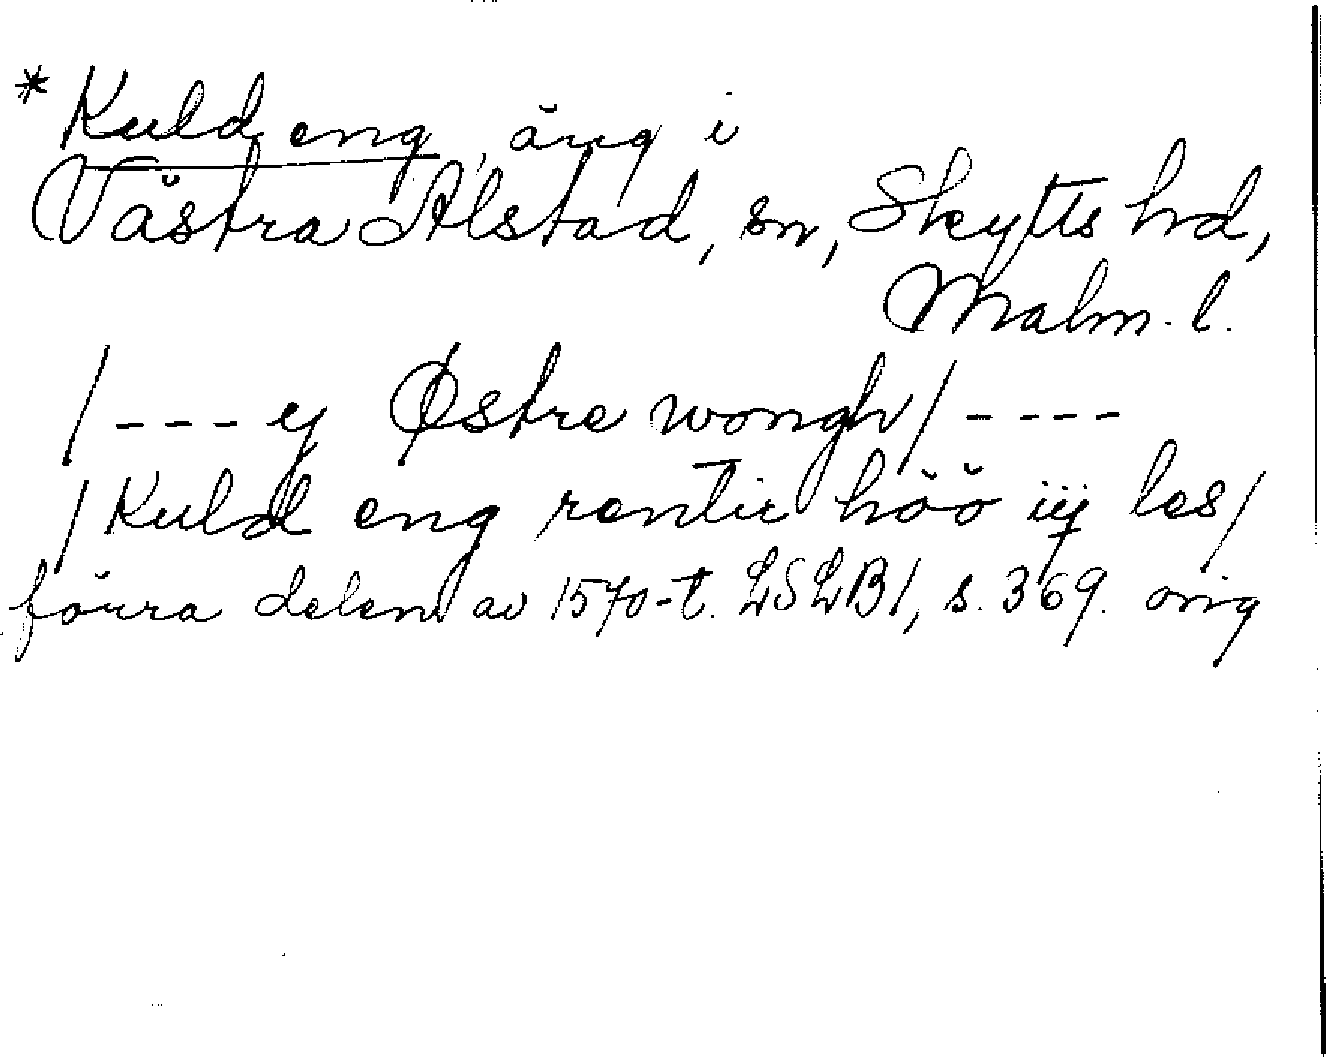 * Kuld eng, äng i
Västra Alstad, sn, Skytts hd,
Malm. l.
/--- ej Østre wongh/----
/Kuld eng rentir höö iij les/
förra delen av 1570-t. LSLB1, s. 369. orig